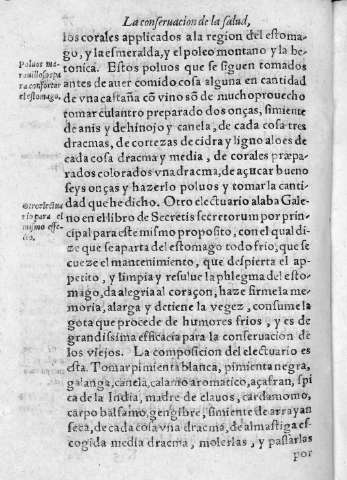 La conseruacion de la salud,
los corales applicados ala region del estoma-
go, y la esmeralda, y el poleo montano y la be-
tonica. Estos poluos que se siguen tomados
antes de auer comido cosa alguna en cantidad
de vna castaña cõ vino sõ de mucho prouecho
tomar culantro preparado dos onças, simiente
de anis y de hinojo y canela, de cada cosa tres
dracmas, de cortezas de cidra y ligno aloes de
cada cosa dracma y media, de corales præpa-
rados colorados vna dracma, de açucar bueno
seys onças y hazerlo poluos y tomar la canti-
dad que he dicho. Otro electuario alaba Gale-
no en el libro de Secretis secretorum por prin-
cipal para este mismo proposito, con el qual di-
ze que se aparta del estomago todo frio, que se
cueze el mantenimiento, que despierta el ap-
petito, y limpia y resulue la phlegma del esto-
mago, da alegria al coraçon, haze firme la me-
moria, alarga y detiene la vegez, consume la
gota que procede de humores frios, y es de
grandissima efficacia para la conseruacion de
los viejos. La composicion del electuario es
esta. Tomar pimienta blanca, pimienta negra,
galanga, canela, calamo aromatico, açafran, spi
ca de la India, madre de clauos, cardamomo,
carpo balsamo, gengibre, simiente de arrayan
seca, de cada cosa vna dracma, de almastiga es-
cogida media dracma, molerlas, y passarlas
por
Poluos ma-
rauillosos pa
ra confortar
el estomago.
Otro electua
rio para el
mismo effe-
cto.